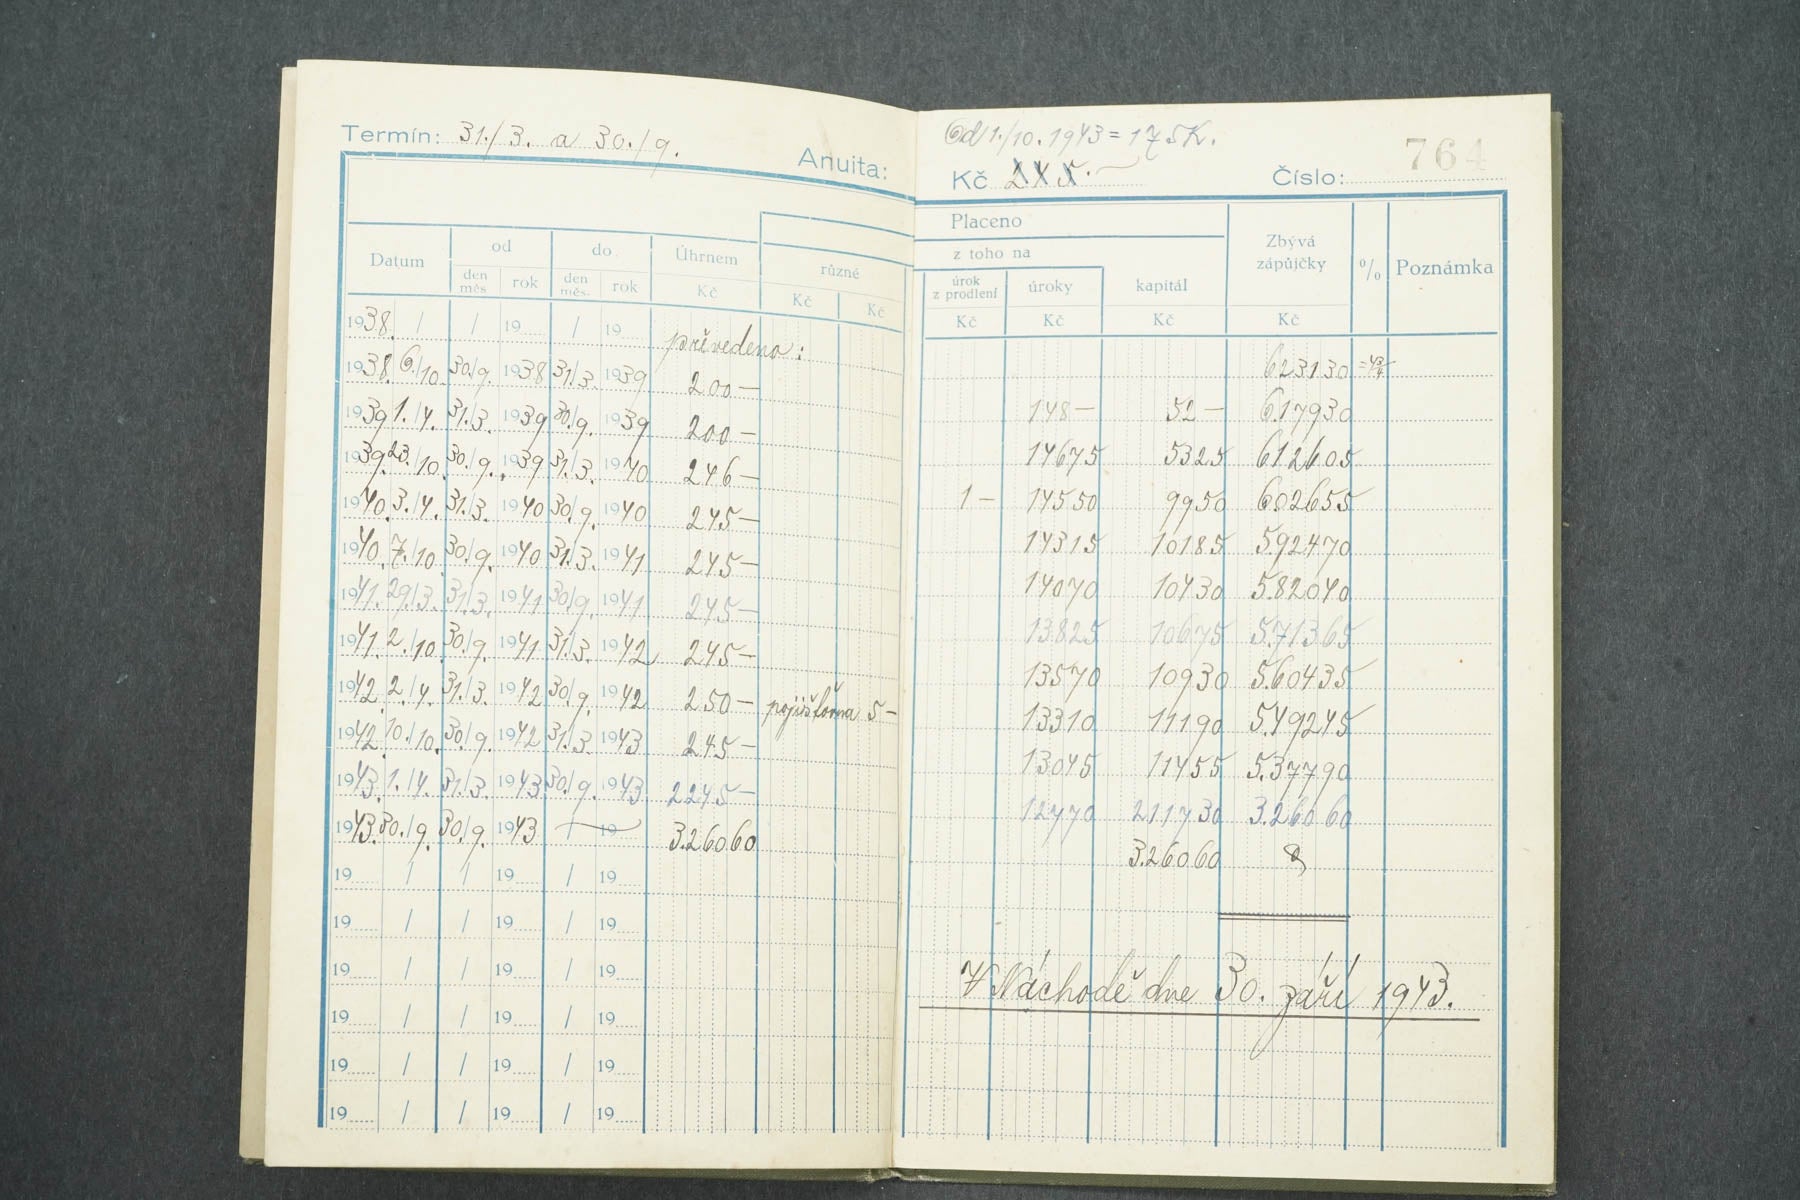 Termín: 31./3. a 30./9. Anuita:
Od 1./10. 1943 = 175 K.
Kč 245.- Číslo: 764
Placeno
Datum od do Úhrnem různé z toho na Zbývá zápůjčky % Poznámka
den měs. rok den měs. rok Kč Kč Kč úrok z prodlení úroky kapitál
Kč Kč Kč Kč
1938. / / 19 / 19 převedeno: 6231 30 = 4¾
1938. 6./10. 30./9. 1938 31./3. 1939 200 — 148 — 52 — 6179 30
1939 1./4. 31./3. 1939 30./9. 1939 200 — 146 75 53 25 6126 05
1939. 23./10. 30./9. 1939 31./3. 1940 246 — 1 — 145 50 99 50 6026 55
1940. 3./4. 31./3. 1940 30./9. 1940 245 — 143 15 101 85 5924 70
1940. 7./10. 30./9. 1940 31./3. 1941 245 — 140 70 104 30 5.820 40
1941. 29./3. 31./3. 1941 30./9. 1941 245 — 138 25 106 75 5.713 65
1941. 2./10. 30./9. 1941 31./3. 1942 245 — 135 70 109 30 5.604 35
1942. 2./4. 31./3. 1942 30./9. 1942 250 — pojišťovna 5 — 133 10 111 90 5.492 45
1942. 10./10. 30./9. 1942 31./3. 1943 245 — 130 45 114 55 5.377 90
1943. 1./4. 31./3. 1943 30./9. 1943 2245 — 127 70 2.117 30 3.260 60
1943. 30./9. 30./9. 1943 / 19 3.260 60 3.260 60
19 / / 19 / 19
19 / / 19 / 19
19 / / 19 / 19
V Náchodě dne 30. září 1943.
19 / / 19 / 19
19 / / 19 / 19
19 / / 19 / 19